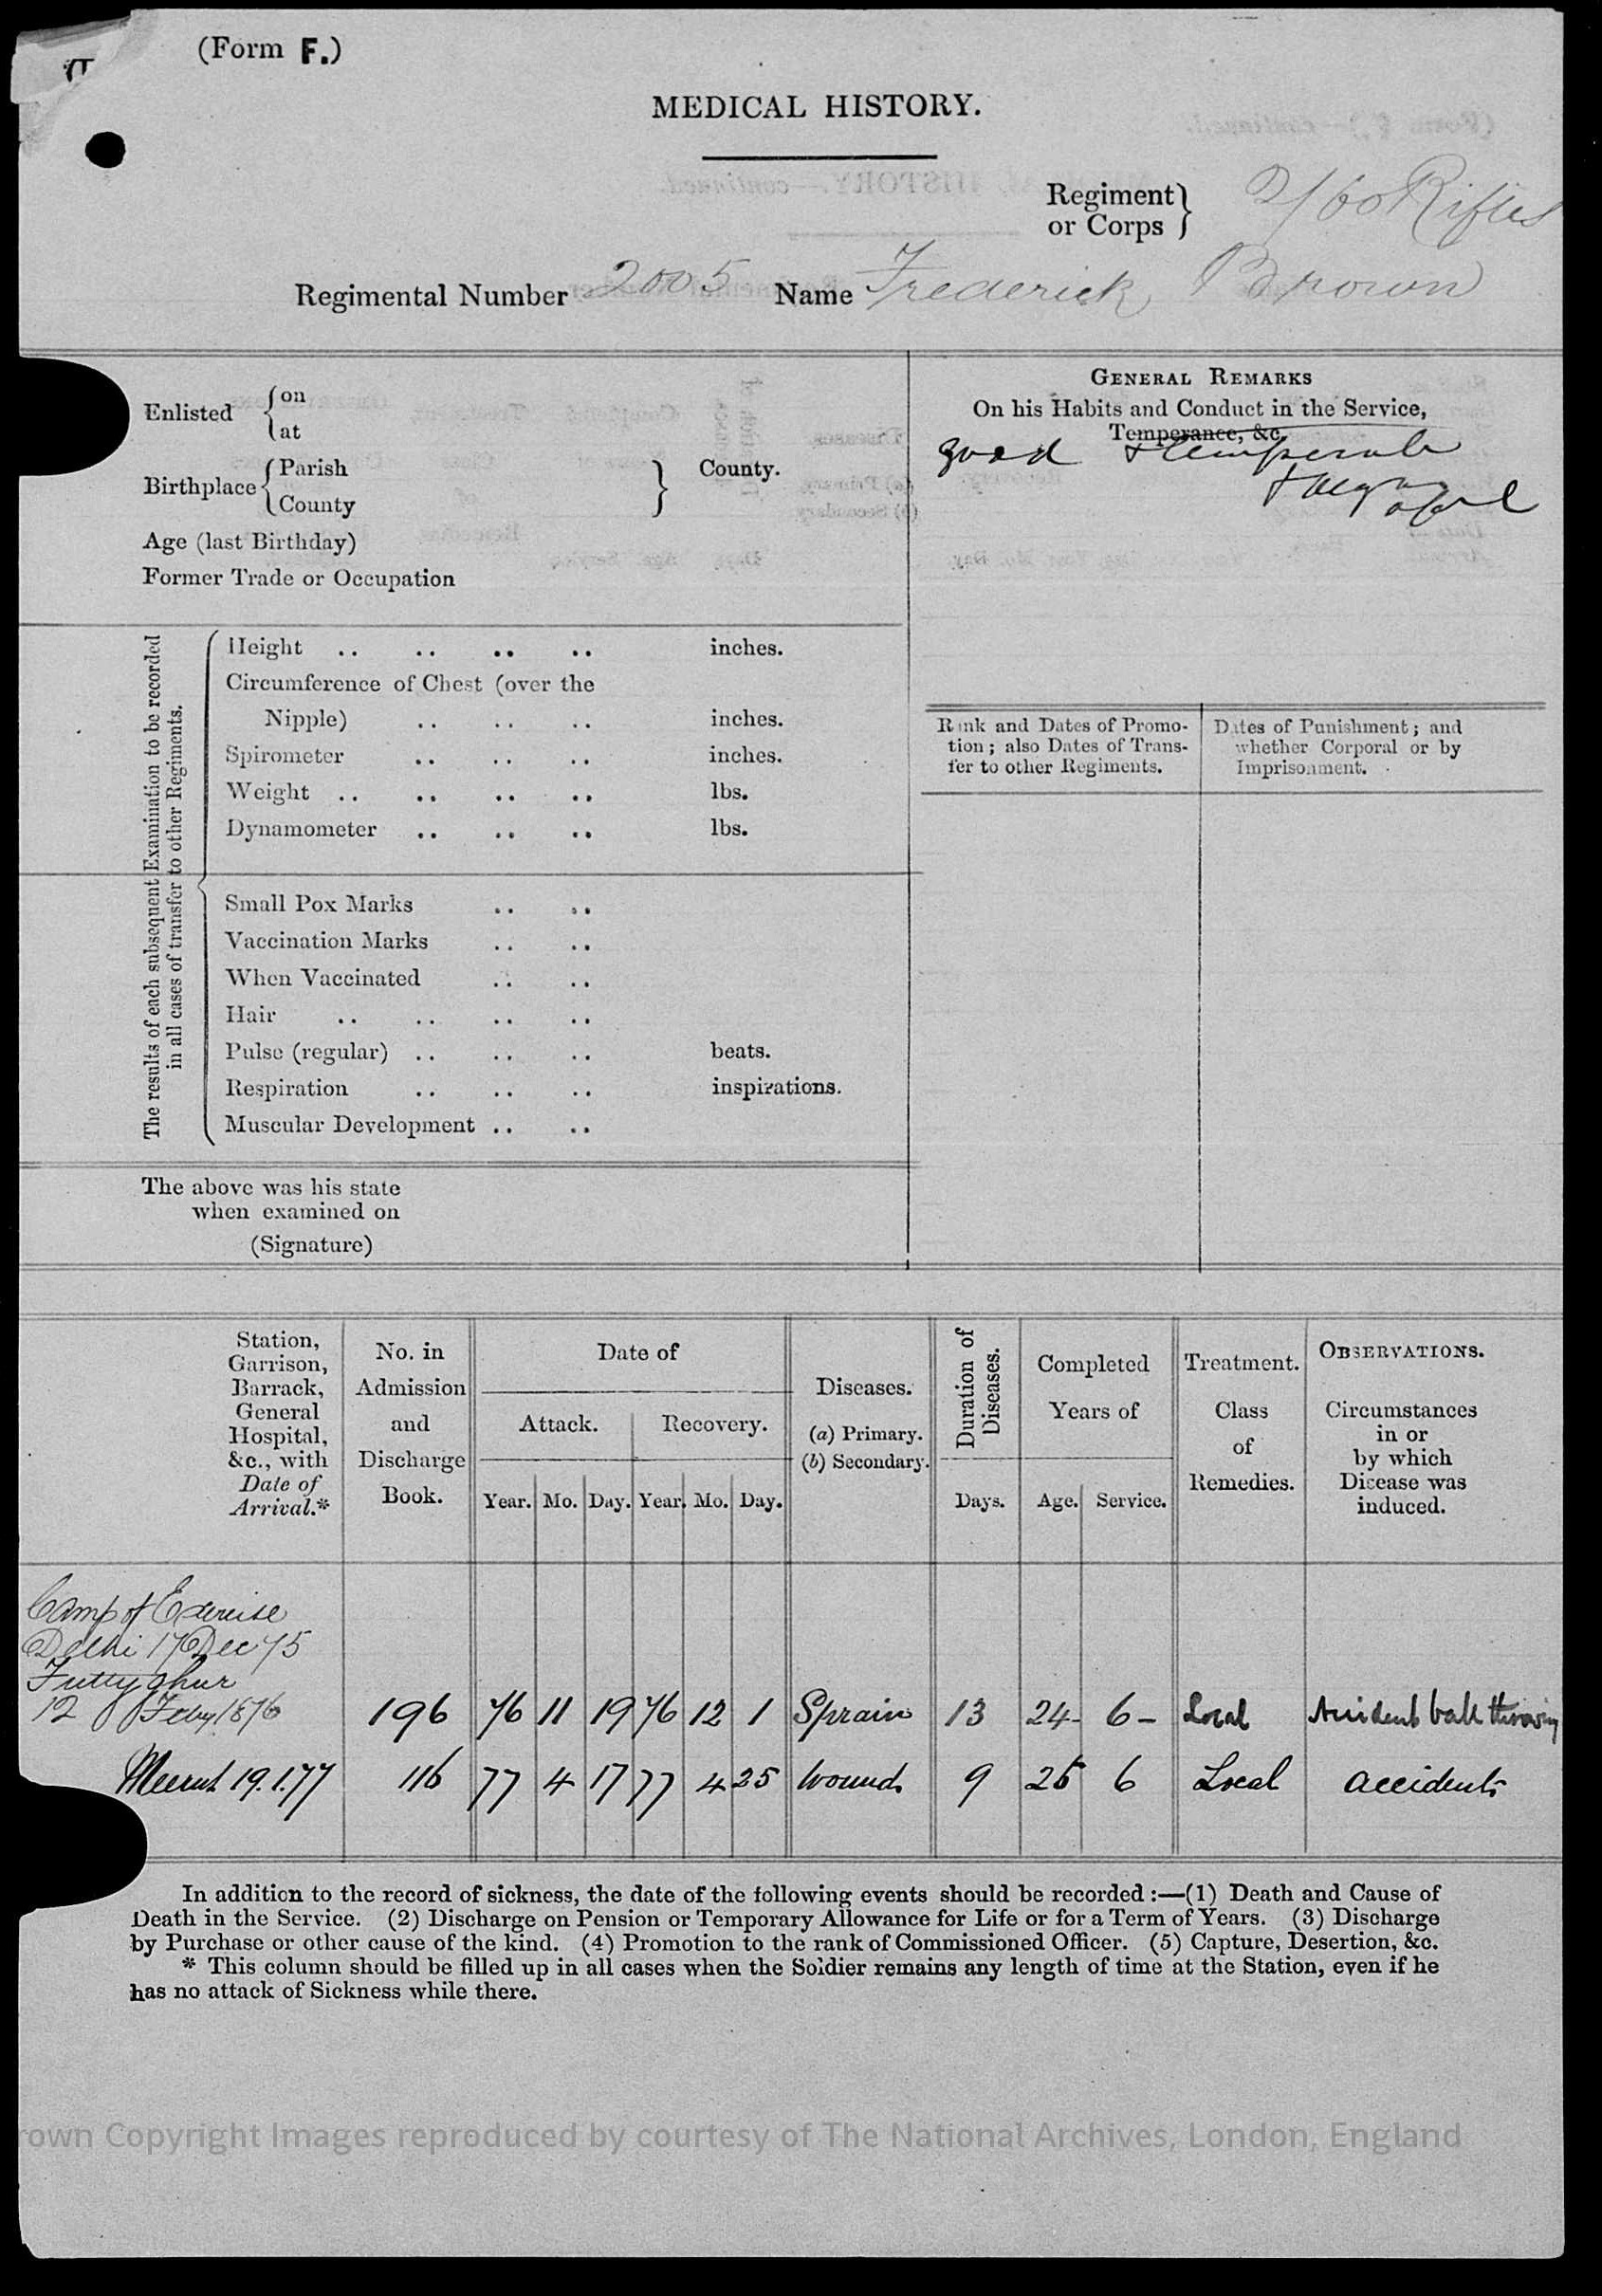 (Form F.)
MEDICAL HISTORY.
Regiment or Corps } 2/60 Rifles
Regimental Number 2005 Name Frederick Brown
Enlisted { on
at
Birthplace { Parish
County } County.
Age (last Birthday)
Former Trade or Occupation
GENERAL REMARKS
On his Habits and Conduct in the Service,
Temperance, &c.
good + temperate
+ regular
The results of each subsequent Examination to be recorded
in all cases of transfer to other Regiments.
Height .. .. .. .. inches.
Circumference of Chest (over the
Nipple) .. .. .. inches.
Spirometer .. .. .. inches.
Weight .. .. .. .. lbs.
Dynamometer .. .. .. lbs.
Small Pox Marks .. ..
Vaccination Marks .. ..
When Vaccinated .. ..
Hair .. .. .. ..
Pulse (regular) .. .. .. beats.
Respiration .. .. .. inspirations.
Muscular Development .. ..
The above was his state
when examined on
(Signature)
Rank and Dates of Promo-
tion; also Dates of Trans-
fer to other Regiments.
Dates of Punishment; and
whether Corporal or by
Imprisonment.
Station,
Garrison,
Barrack,
General
Hospital,
&c., with
Date of
Arrival.*
No. in
Admission
and
Discharge
Book.
Date of
Attack. Recovery.
Year. Mo. Day. Year. Mo. Day.
Diseases.
(a) Primary.
(b) Secondary.
Duration of
Diseases.
Days.
Completed
Years of
Age. Service.
Treatment.
Class
of
Remedies.
OBSERVATIONS.
Circumstances
in or
by which
Disease was
induced.
Camp of Exercise
Delhi 17 Dec 75
Futtyghur
12 Feby 1876 196 76 11 19 76 12 1 Sprain 13 24 - 6 - Local Accident ball throwing
Meerut 19.1.77 116 77 4 17 77 4 25 Wound 9 25 6 Local accident
In addition to the record of sickness, the date of the following events should be recorded:—(1) Death and Cause of
Death in the Service. (2) Discharge on Pension or Temporary Allowance for Life or for a Term of Years. (3) Discharge
by Purchase or other cause of the kind. (4) Promotion to the rank of Commissioned Officer. (5) Capture, Desertion, &c.
* This column should be filled up in all cases when the Soldier remains any length of time at the Station, even if he
has no attack of Sickness while there.
rown Copyright Images reproduced by courtesy of The National Archives, London, England